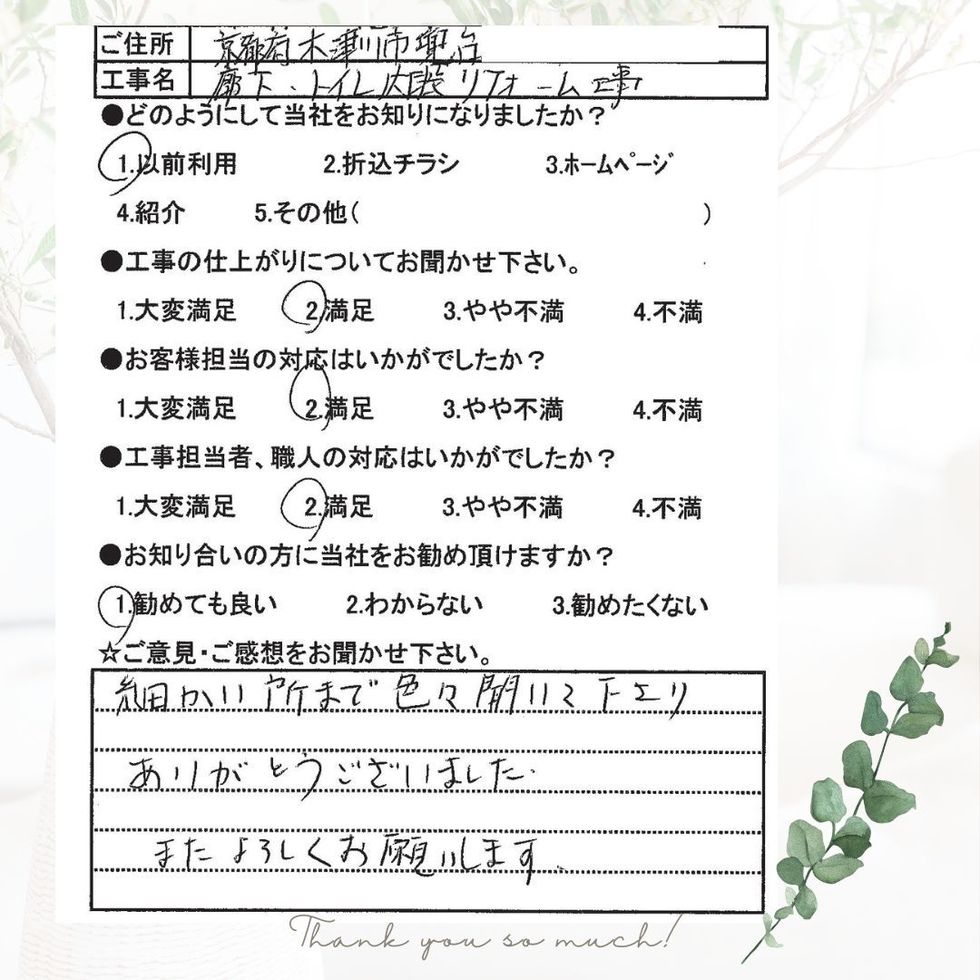 ご住所 京都府木津川市兜台
工事名 廊下、トイレ内装リフォーム工事
●どのようにして当社をお知りになりましたか？
1.以前利用 2.折込チラシ 3.ホームページ
4.紹介 5.その他( )
●工事の仕上がりについてお聞かせ下さい。
1.大変満足 2.満足 3.やや不満 4.不満
●お客様担当の対応はいかがでしたか？
1.大変満足 2.満足 3.やや不満 4.不満
●工事担当者、職人の対応はいかがでしたか？
1.大変満足 2.満足 3.やや不満 4.不満
●お知り合いの方に当社をお勧め頂けますか？
1.勧めても良い 2.わからない 3.勧めたくない
☆ご意見・ご感想をお聞かせ下さい。
細かい所まで色々聞いて下さり
ありがとうございました.
またよろしくお願いします.
Thank you so much!